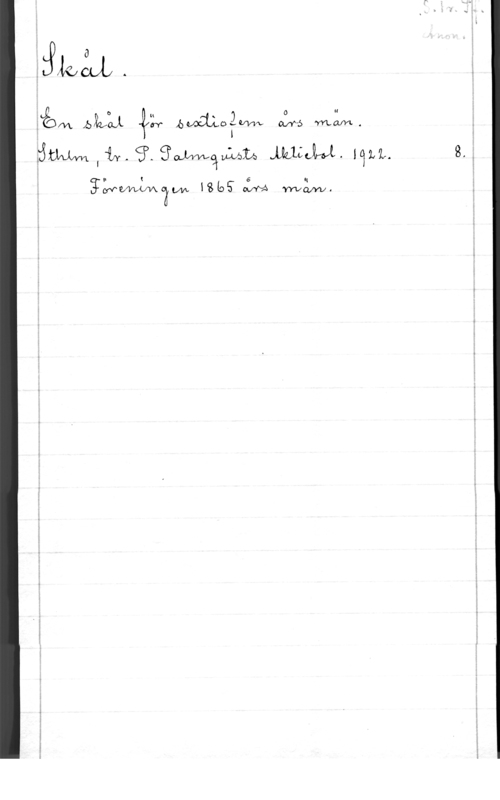 S. tr. Pf.
Anon.
Skål.
En skål för sextiofem års män.
Sthlm, tr. P. Palmquists Aktiebol. 1922. 8.
Föreningen 1865 års män.